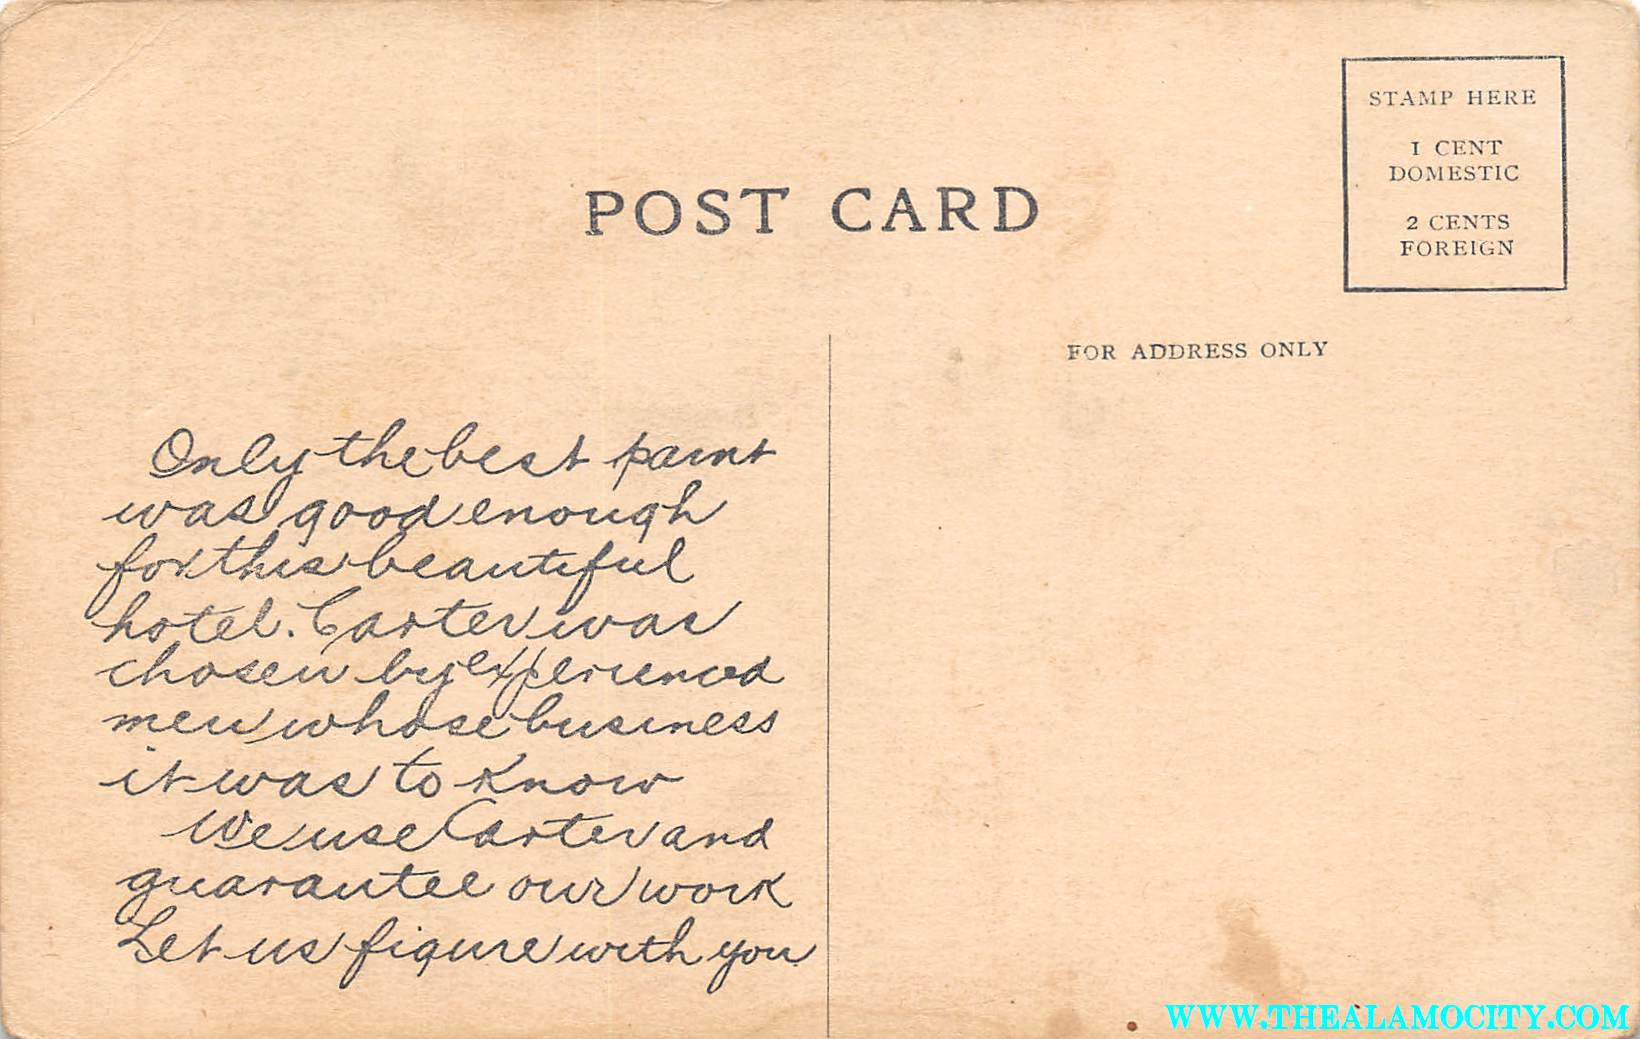 STAMP HERE
1 CENT
DOMESTIC
2 CENTS
FOREIGN
POST CARD
FOR ADDRESS ONLY
Only the best paint
was good enough
for this beautiful
hotel. Carter was
chosen by experienced
men whose business
it was to know
We use Carter and
guarantee our work
Let us figure with you
WWW.THEALAMOCITY.COM